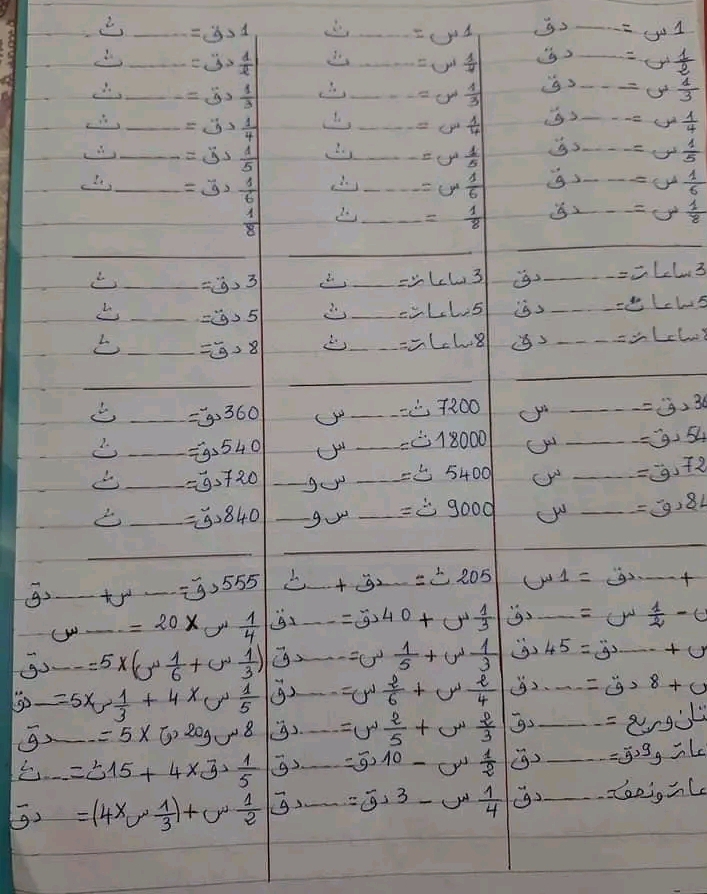 1 س = ------ دق
1/2 س = ------ دق
1/3 س = ------ دق
1/4 س = ------ دق
1/5 س = ------ دق
1/6 س = ------ دق
1/8 س = ------ دق
1 س = ------ ث
1/2 س = ------ ث
1/3 س = ------ ث
1/4 س = ------ ث
1/5 س = ------ ث
1/6 س = ------ ث
1/8 = ------ ث
1 دق = ------ ث
1/2 دق = ------ ث
1/3 دق = ------ ث
1/4 دق = ------ ث
1/5 دق = ------ ث
1/6 دق = ------ ث
1/8
3 ساعات = ------ دق
5 ساعات = ------ دق
8 ساعات = ------ دق
3 ساعات = ------ ث
5 ساعات = ------ ث
8 ساعات = ------ ث
3 دق = ------ ث
5 دق = ------ ث
8 دق = ------ ث
دق = ------ س
دق = ------ س
دق = ------ س
دق = ------ س
7200 ث = ------ س
18000 ث = ------ س
5400 ث = ------ س و ------
9000 ث = ------ س و ------
360 دق = ------ ث
540 دق = ------ ث
720 دق = ------ ث
840 دق = ------ ث
+ ------ دق = 1 س
- 1/2 س = ------ دق
س + ------ دق = 45 دق
س + 8 دق = ------ دق
وربع = ------ دق
و 9 دق = ------ دق
ونصف = ------ دق
205 ث = ------ دق + ------ ث
1/3 س + 40 دق = ------ دق
1/3 س + 1/5 س = ------ دق
2/4 س + 2/6 س = ------ دق
2/3 س + 2/5 س = ------ دق
1/2 س - 10 دق = ------ دق
1/4 س - 3 دق = ------ دق
555 دق = ------ س + ------ دق
1/4 س × 20 = ------ س
(1/3 س + 1/6 س) × 5 = ------ دق
1/5 س × 4 + 1/3 س × 5 = ------ دق
8 س و 20 دق × 5 = ------ دق
1/5 دق × 4 + 15 ث = ------ ث
1/2 س + (1/3 س × 4) = ------ دق